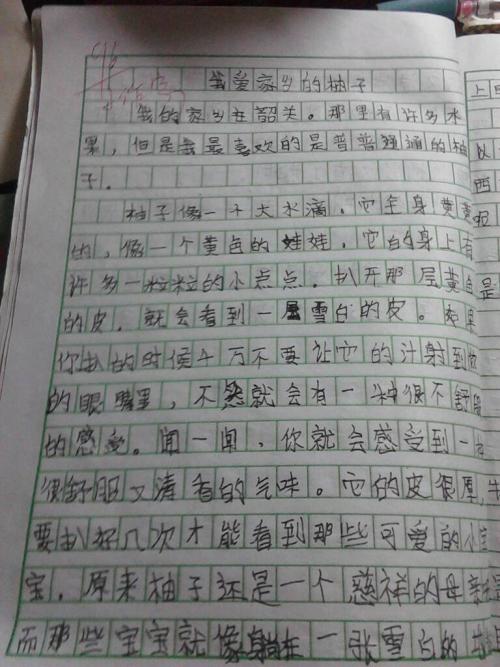 我爱家乡的柚子
我的家乡在韶关。那里有许多水
果，但是我最喜欢的是普普通通的柚
子。
柚子像一个大水滴，它全身黄黄
的，像一个黄色的娃娃，它的身上有
许多一粒粒的小点点。扒开那层黄色
的皮，就会看到一层雪白的皮。如果
你扒的时候千万不要让它的汁射到你
的眼睛里，不然就会有一种很不舒服
的感受。闻一闻，你就会感受到一
很舒服又清香的气味。它的皮很厚，
要扒好几次才能看到那些可爱的小宝
宝，原来柚子还是一个慈祥的母亲
而那些宝宝就像躺在一张雪白的